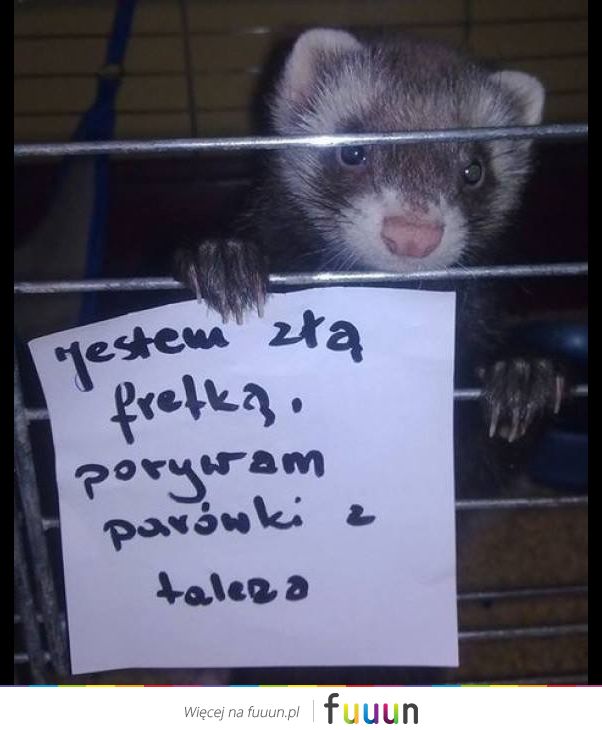 jestem złą
fretką.
porywam
parówki z
talerza
Więcej na fuuun.pl | fuuun